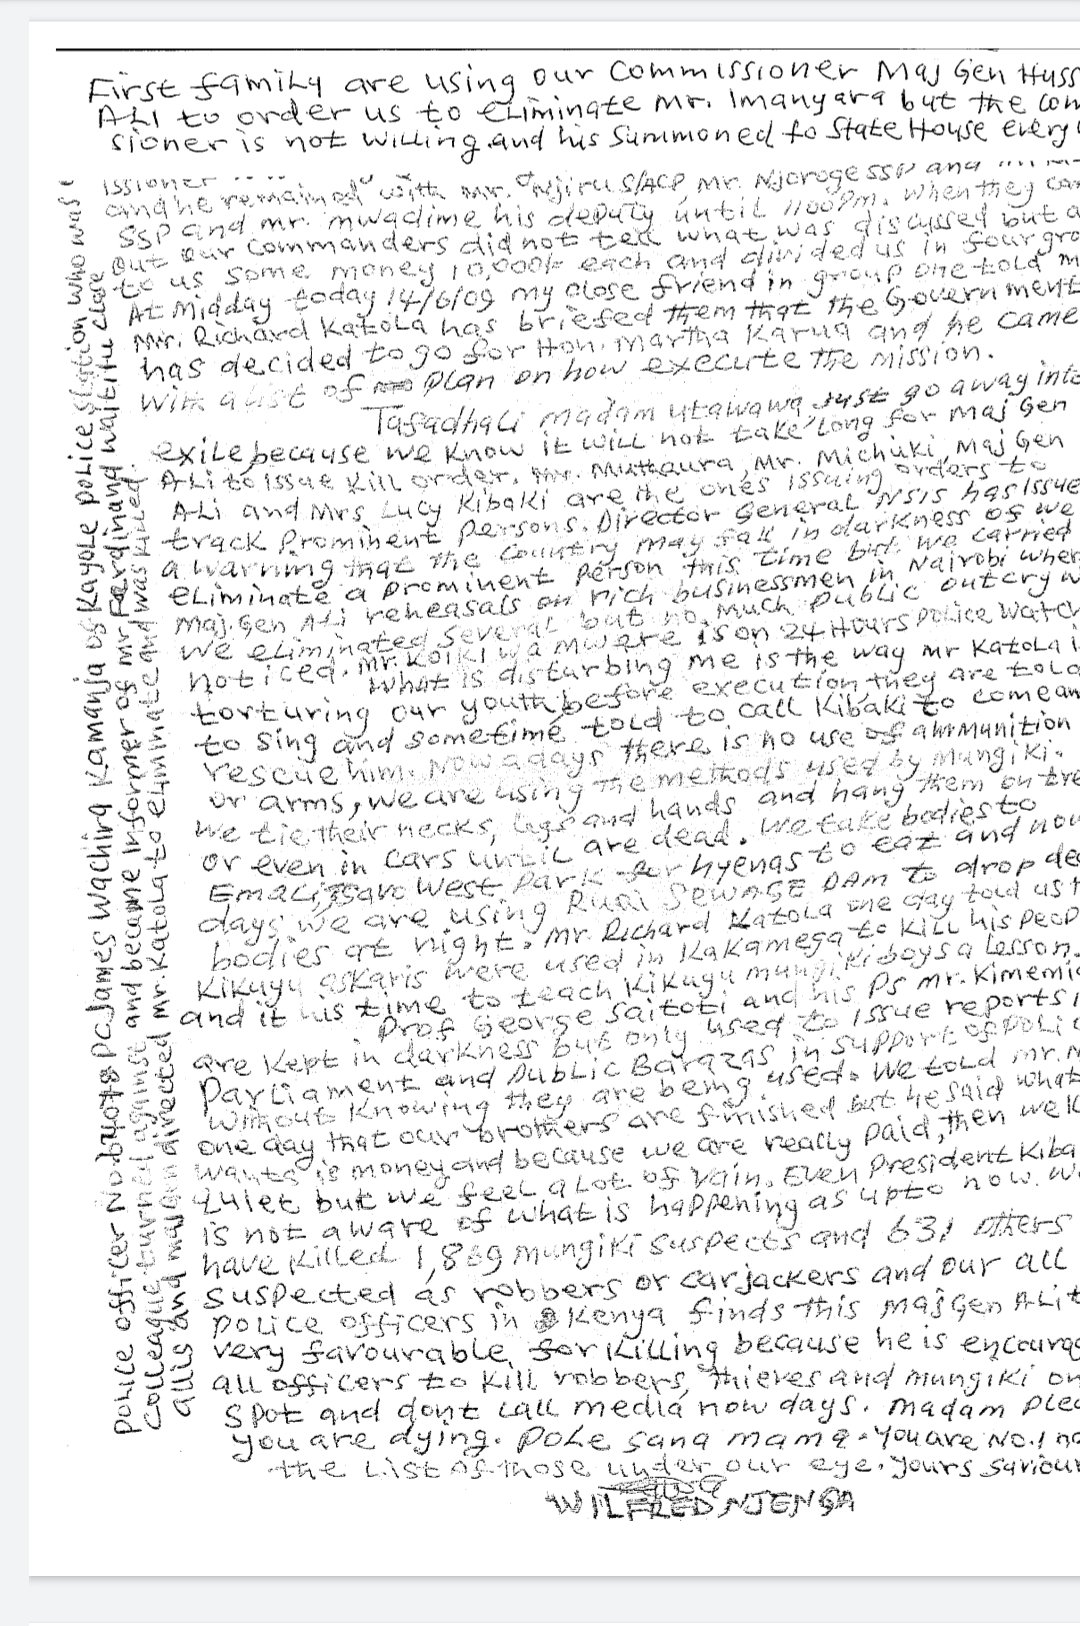 First family are using our Commissioner Maj Gen Huss
ALI to order us to eliminate Mr. Imanyara but the com
sioner is not willing and his summoned to State House every
issioner
and he remained with Mr. Njiru S/ACP Mr. Njoroge SSP and
SSP and Mr. Mwadime his deputy until 1100pm. When they cam
out our commanders did not tell what was discussed but
to us some money 10,000/= each and divided us in four gro
At Midday today 14/6/09 my close friend in group one told m
Mr. Richard Katola has briefed them that the Government
has decided to go for Hon. Martha Karua and he came
with a list of plan on how execute the mission.
Tafadhali madam utawawa just go away into
exile because we know it will not take long for Maj Gen
ALi to issue kill order. Mr. Muthaura, Mr. Michuki, Maj Gen
ALi and Mrs Lucy Kibaki are the ones issuing orders to
track prominent persons. Director General NSIS has issue
a warning that the country may fall in darkness of we
eliminate a prominent person this time but we carried
Maj. Gen Ali rehearsals on rich businessmen in Nairobi wher
we eliminated several but no much public outcry w
noticed. Mr. Koiki wa mwere is on 24 Hours police watch
What is disturbing me is the way Mr Katola i
torturing our youth before execution, they are told
to sing and sometime told to call Kibaki to come an
rescue him. Now adays there is no use of ammunition
or arms, we are using the methods used by Mungiki.
We tie their necks, legs and hands and hang them on tre
or even in cars until are dead. We take bodies to
Emali, Tsavo West Park for hyenas to eat and now
days we are using Ruai Sewage DAM to drop de
bodies at night. Mr. Richard Katola one day told us t
Kikuyu askaris were used in Kakamega to kill his peop
and it his time to teach Kikuyu mungiki boys a lesson.
Prof George Saitoti and his PS Mr. Kimemia
are kept in darkness but only used to issue reports i
Parliament and Public Barazas in support of poli
without knowing they are being used. We told Mr.
one day that our brothers are finished but he said what
wants is money and because we are really paid, then we k
quiet but we feel a lot of vain. Even President Kiba
is not aware of what is happening as upto now. We
have killed 1,869 mungiki suspects and 631 others
suspected as robbers or carjackers and our all
police officers in Kenya finds this Maj Gen ALi t
very favourable for killing because he is encourag
all officers to kill robbers, thieves and mungiki on
spot and dont call media now days. Madam plea
you are dying. Pole sana mama. You are No. 1
the list of those under our eye. Yours Saviour
WILFRED NJENGA
Police officer No. PC James Wachira Kamanja of Kayole police station who was
colleague turned against and became informer of Mr Ferdinand Waititu
allis and directed Mr. Katola to eliminate and was killed.